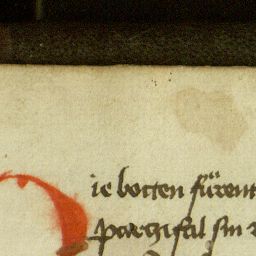 Die botten fůrent
parchifal sin